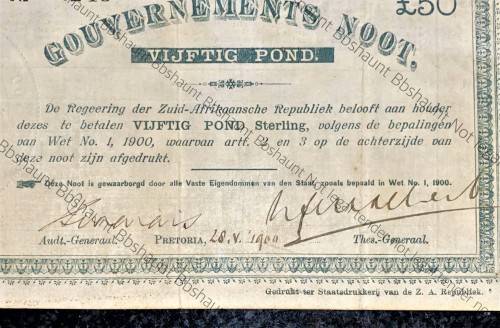 £50
GOUVERNEMENTS NOOT.
VIJFTIG POND.
De Regeering der Zuid-Afrikaansche Republiek belooft aan houder
dezes te betalen VIJFTIG POND Sterling, volgens de bepalingen
van Wet No. 1, 1900, waarvan artt. 2 en 3 op de achterzijde van
deze noot zijn afgedrukt.
Deze Noot is gewaarborgd door alle Vaste Eigendommen van den Staat, zooals bepaald in Wet No. 1, 1900.
Audt.-Generaal. PRETORIA, 28.V.1900 Thes.-Generaal.
Gedrukt ter Staatsdrukkerij van de Z. A. Republiek.
Bbshaunt Not Legal Tender